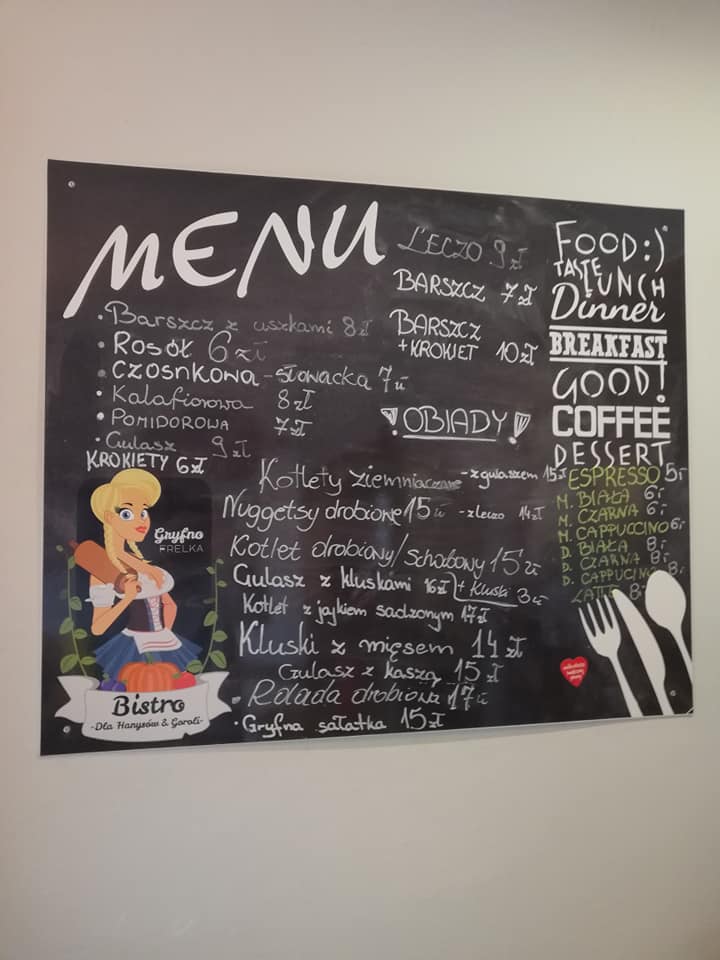 MENU
L'ECZO 9 zł
BARSZCZ 7 zł
BARSZCZ
+ KROKIET 10 zł
• Barszcz z uszkami 8 zł
• Rosół 6 zł
• CZOSNKOWA - słowacka 7 zł
• Kalafiorowa 8 zł
• POMIDOROWA 7 zł
• Gulasz 9 zł
KROKIETY 6 zł
OBIADY
Kotlety ziemniaczane - z gulaszem 15 zł
Nuggetsy drobiowe 15 zł - z leczo 14 zł
Kotlet drobiowy/schabowy 15 zł
Gulasz z kluskami 16 zł + Kluski 3 zł
Kotlet z jajkiem sadzonym 17 zł
Kluski z mięsem 14 zł
Gulasz z kaszą 15 zł
• Rolada drobiowa 17 zł
• Gryfna sałatka 15 zł
FOOD:)
TASTE
LUNCH
Dinner
BREAKFAST
GOOD!
COFFEE
DESSERT
ESPRESSO 5,-
M. BIAŁA 6,-
M. CZARNA 6,-
M. CAPPUCCINO 6,-
D. BIAŁA 8,-
D. CZARNA 8,-
D. CAPPUCINO 8,-
LATTE 8,-
Gryfno
FRELKA
Bistro
-Dla Hanysów & Goroli-